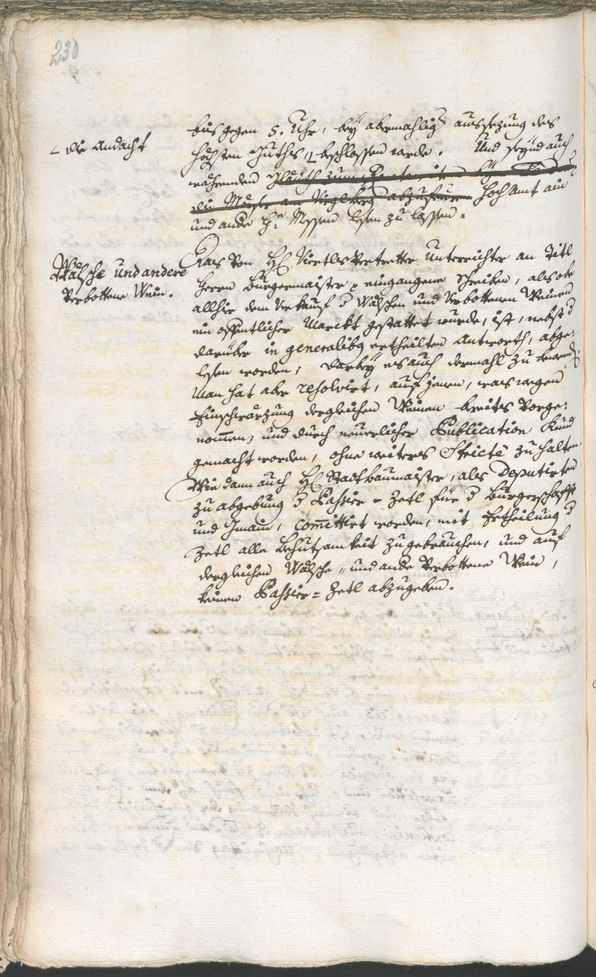 230
bis gegen 5. Uhr, bey abermahlig aussezung des
∟ die Andacht
höchsten Guths, ∟ beschlossen werde. Und seynd auch
währenden
Hochamt ein
und andre H. Messen lesen zu lassen.
Wälsche und andere
verbottene Wein.
Das von H. Viertls vertretter Unterrichter an Titl
Herrn Burgermaister eingangene schreiben, als ob
allhir dem verkauf d Wälschen und verbottenen Weinen
ein offentlicher Marckt gestattet wurde, ist, nebst d
darüber in generalibus ertheilten Antworth, abge:
lesen worden;
Man hat aber resolvirt, auf jenem, was wegen
Einschwärzung dergleichen Weinen bereits vorge:
nommen, und durch neuerlicher Publication Kund
gemacht worden, ohne weiters Stricte zu halten
Wie dann auch H. Stadtbaumaister, als Deputirten
zu abgebung d Passier = Zetl für d Burgerschafft
und Gmain, comettirt worden, mit Ertheilung d
Zetl alle behutsamkeit zu gebrauchen, und auf
dergleichen Wälsche „ und andre verbottene Wein,
keinen Passier = Zetl abzugeben.